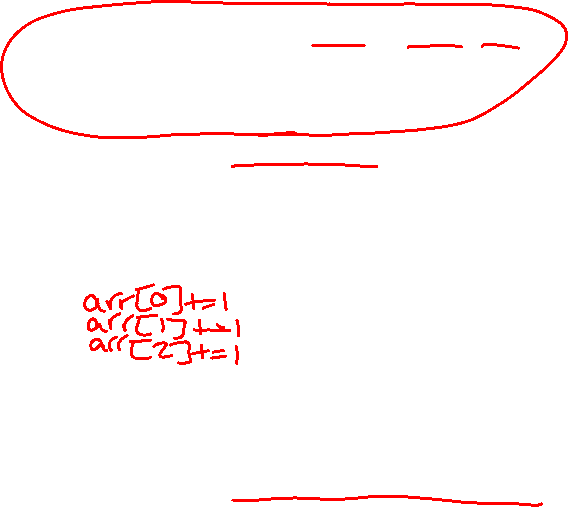 arr[0]+=1
arr[1]+=1
arr[2]+=1